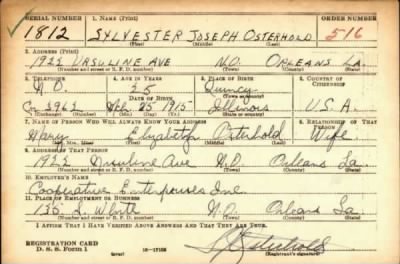 SERIAL NUMBER 1. NAME (Print) ORDER NUMBER
1812 SYLVESTER JOSEPH OSTERHOLD 516
(First) (Middle) (Last)
2. ADDRESS (Print)
1922 URSULINE AVE N.O. ORLEANS LA.
(Number and street or R. F. D. number) (Town) (County) (State)
3. TELEPHONE 4. AGE IN YEARS 5. PLACE OF BIRTH 6. COUNTRY OF CITIZENSHIP
N O. 25 Quincy
DATE OF BIRTH (Town or county)
2962 25 1915 Illinois U.S.A.
(Exchange) (Number) (Mo.) (Day) (Yr.) (State or country)
7. NAME OF PERSON WHO WILL ALWAYS KNOW YOUR ADDRESS 8. RELATIONSHIP OF THAT PERSON
Mary Elizabeth Osterhold Wife
(Mr., Mrs., Miss) (First) (Middle) (Last)
9. ADDRESS OF THAT PERSON
1922 Ursuline Ave N.O. Orleans La.
(Number and street or R. F. D. number) (Town) (County) (State)
10. EMPLOYER'S NAME
Cooperative Enterprises Inc.
11. PLACE OF EMPLOYMENT OR BUSINESS
135 S. White N.O. Orleans La.
(Number and street or R. F. D. number) (Town) (County) (State)
I AFFIRM THAT I HAVE VERIFIED ABOVE ANSWERS AND THAT THEY ARE TRUE.
REGISTRATION CARD
D. S. S. Form 1 (over) 16-17105 (Registrant's signature)